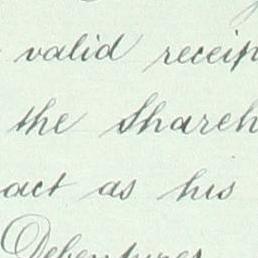 valid receip
the Shareh
act as his
Debentures